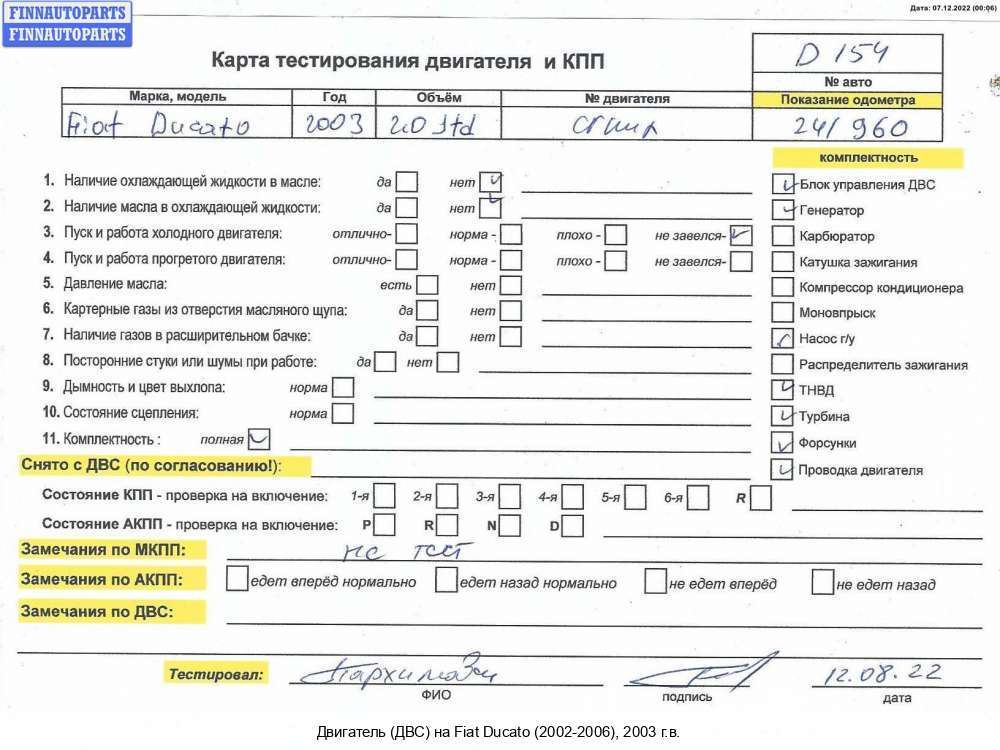 FINNAUTOPARTS
FINNAUTOPARTS
Дата: 07.12.2022 (00:06)
Карта тестирования двигателя и КПП
D 154
№ авто
Марка, модель Год Объём № двигателя Показание одометра
Fiat Ducato 2003 2.0 Jtd 241960
комплектность
1. Наличие охлаждающей жидкости в масле: да нет
Блок управления ДВС
2. Наличие масла в охлаждающей жидкости: да нет
Генератор
3. Пуск и работа холодного двигателя: отлично- норма - плохо - не завелся-
Карбюратор
4. Пуск и работа прогретого двигателя: отлично- норма - плохо - не завелся-
Катушка зажигания
5. Давление масла: есть нет
Компрессор кондиционера
6. Картерные газы из отверстия масляного щупа: да нет
Моновпрыск
7. Наличие газов в расширительном бачке: да нет
Насос г/у
8. Посторонние стуки или шумы при работе: да нет
Распределитель зажигания
9. Дымность и цвет выхлопа: норма
ТНВД
10. Состояние сцепления: норма
Турбина
11. Комплектность : полная
Форсунки
Снято с ДВС (по согласованию!):
Проводка двигателя
Состояние КПП - проверка на включение: 1-я 2-я 3-я 4-я 5-я 6-я R
Состояние АКПП - проверка на включение: P R N D
Замечания по МКПП: не тест
Замечания по АКПП: едет вперёд нормально едет назад нормально не едет вперёд не едет назад
Замечания по ДВС:
Тестировал: 12.08.22
ФИО подпись дата
Двигатель (ДВС) на Fiat Ducato (2002-2006), 2003 г.в.